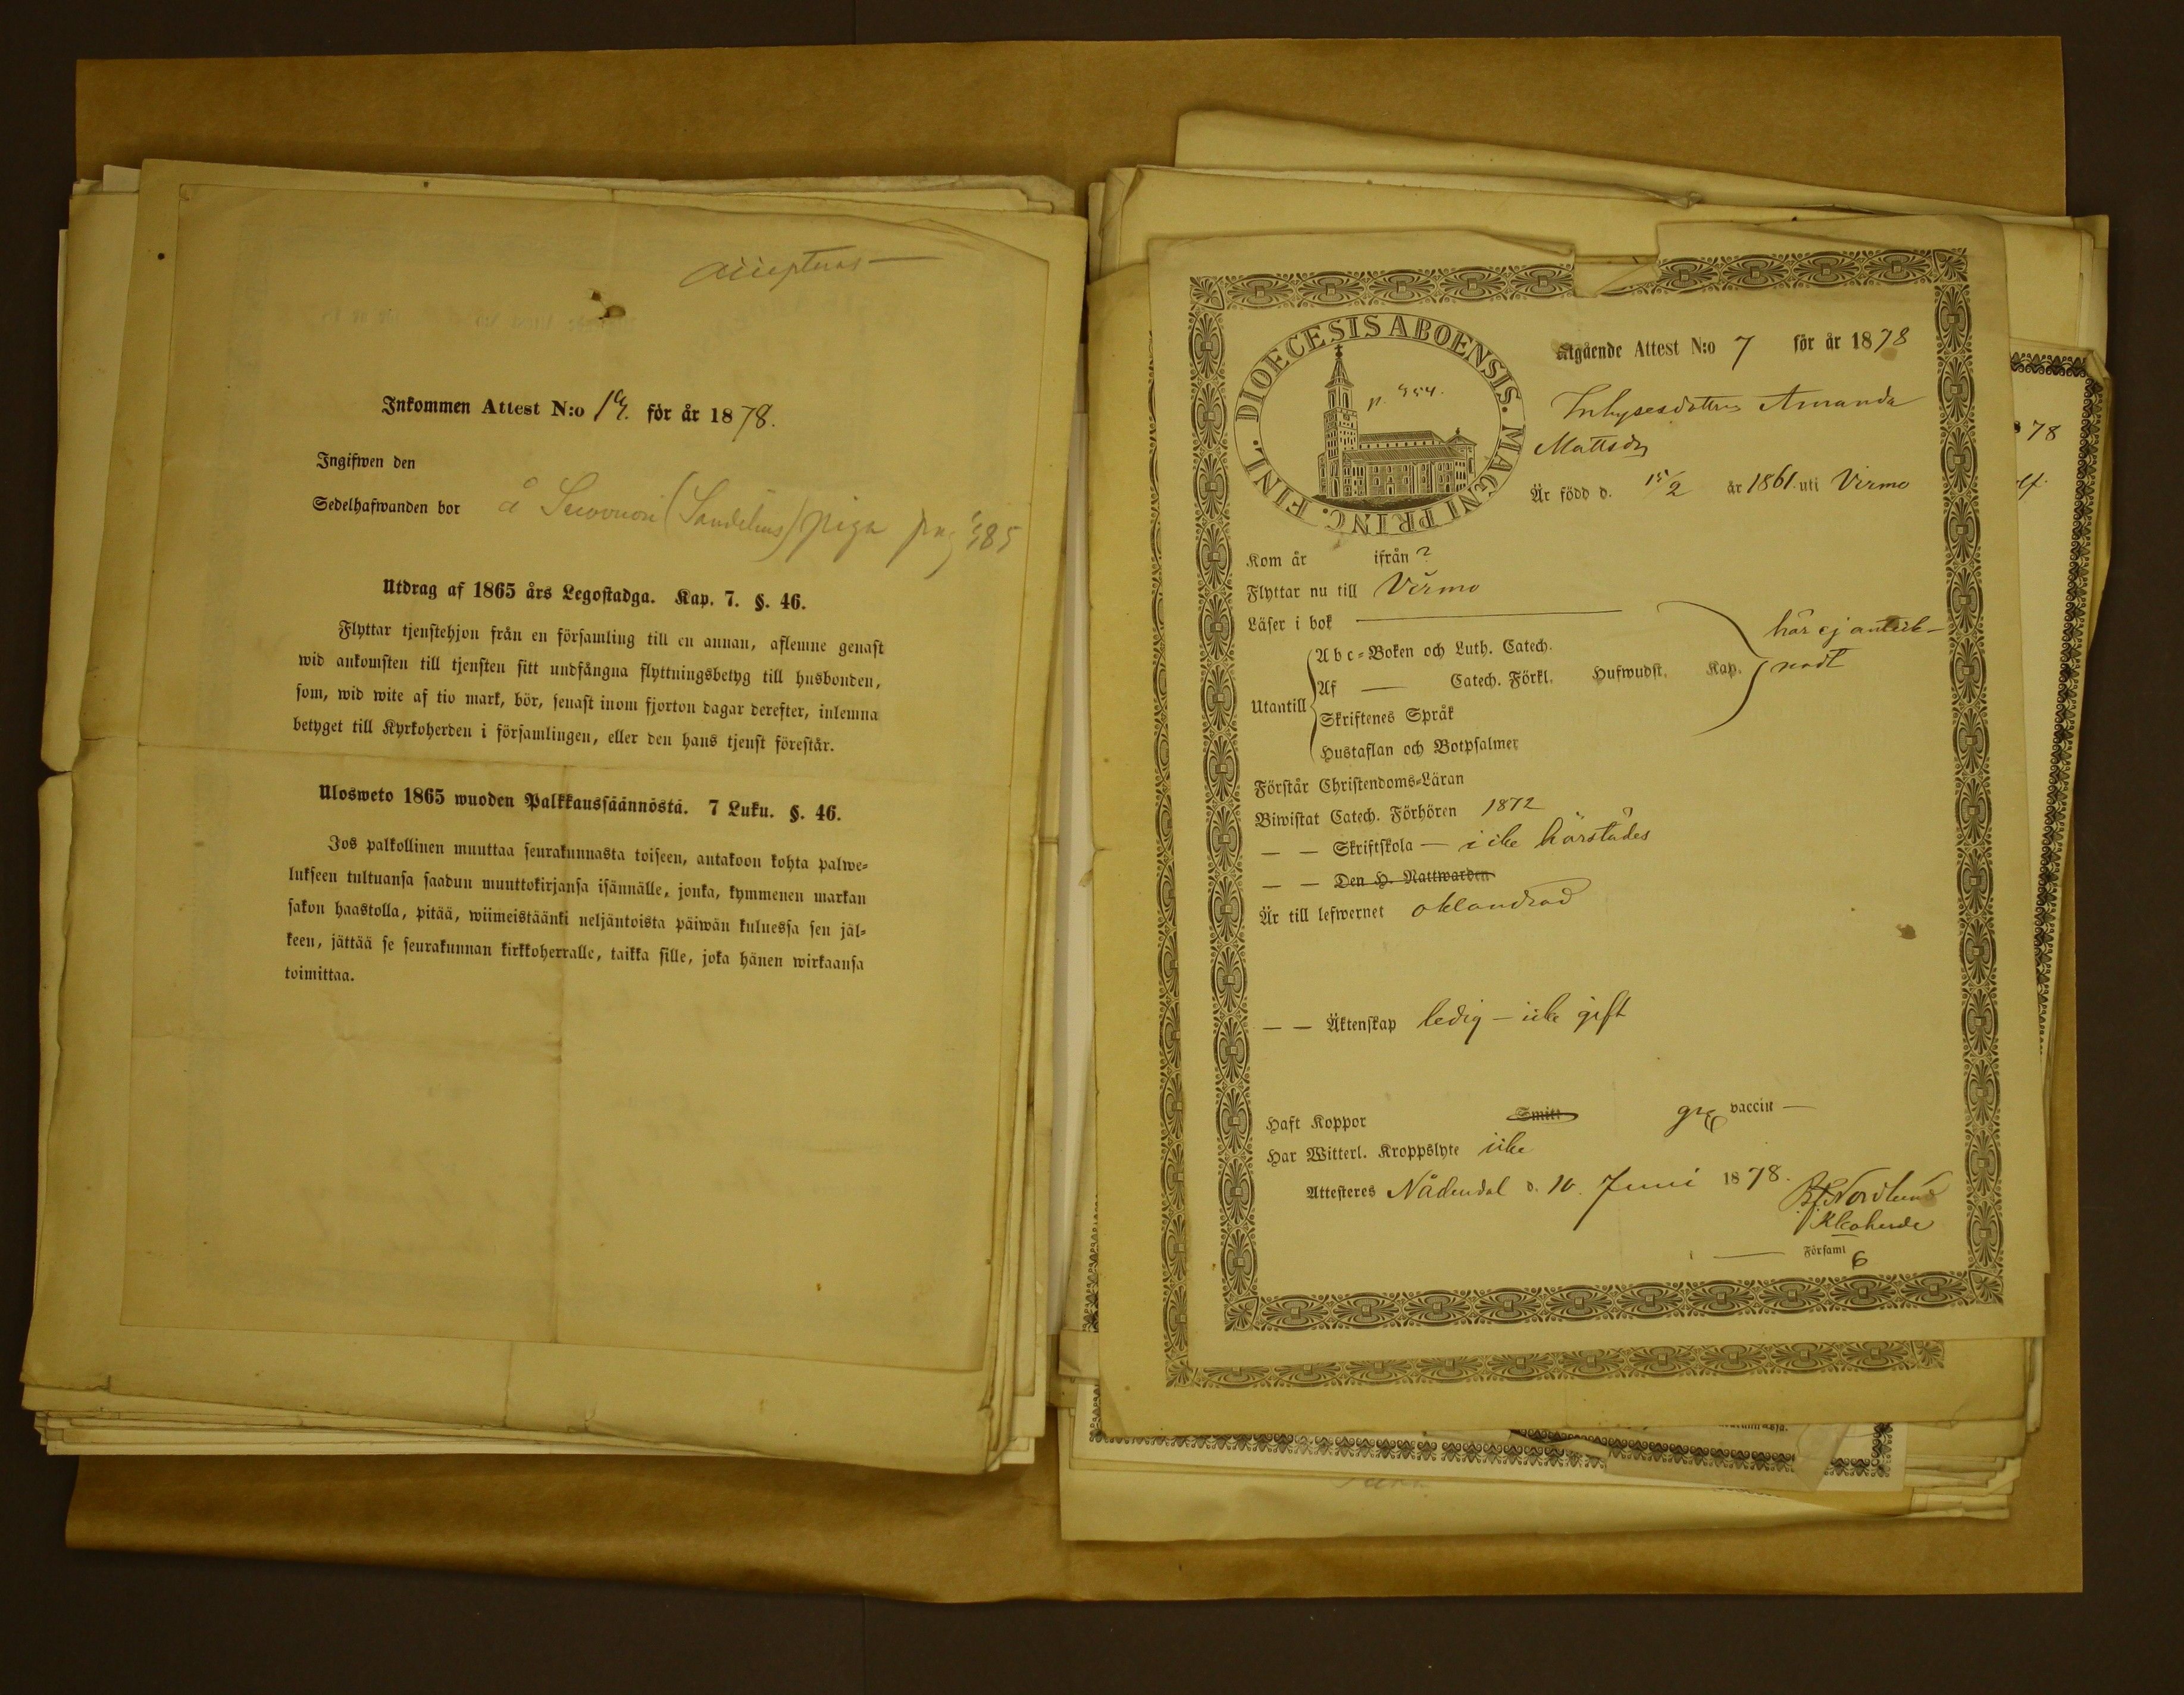 Inkommen Attest N:o för år 1878.
Ingifwen den
Sedelhafwanden bor å (Sandelius) piga pag 385
Utdrag af 1865 års Legostadga. Kap. 7. §. 46.
Flyttar tjenstehjon från en församling till en annan, aflemne genast
wid ankomsten till tjensten sitt undfångna flyttningsbetyg till husbonden,
som, wid wite af tio mark, bör, senast inom fjorton dagar derefter, inlemna
betyget till Kyrkoherden i församlingen, eller den hans tjenst förestår.
Ulosweto 1865 wuoden Palkkaussäännöstä. 7 Luku. §. 46.
Jos palkollinen muuttaa seurakunnasta toiseen, antakoon kohta palwe=
lukseen tultuansa saadun muuttokirjansa isännälle, jonka, kymmenen markan
sakon haastolla, pitää, wiimeistäänki neljäntoista päiwän kuluessa sen jäl=
keen, jättää se seurakunnan kirkkoherralle, taikka sille, joka hänen wirkaansa
toimittaa.
DIOECESIS ABOENSIS. MAGNI PRINC. FINL.
p. 954.
Utgående Attest N:o 7 för år 1878
Inhysesdottren Amanda
Mattsdr
Är född d. 15/2 år 1861 uti Virmo
Kom år ifrån ?
Flyttar nu till Virmo
Läser i bok
Utantill
Abc=Boken och Luth. Catech.
Af — Catech. Förkl. Hufwudst. Kap.
Skriftenes Språk
Hustaflan och Botpsalmer
här ej anteck-
nadt
Förstår Christendoms=Läran
Biwistat Catech. Förhören 1872
— — Skriftskola — icke härstädes
— — Den H. Nattwarden
Är till lefwernet oklandrad
— — Äktenskap ledig — icke gift
Haft Koppor Smitt vaccin —
Har Witterl. Kroppslyte icke
Attesteres Nådendal d. 10. Juni 1878.
Nordlund
Kkoherde
i — Församl
6
78